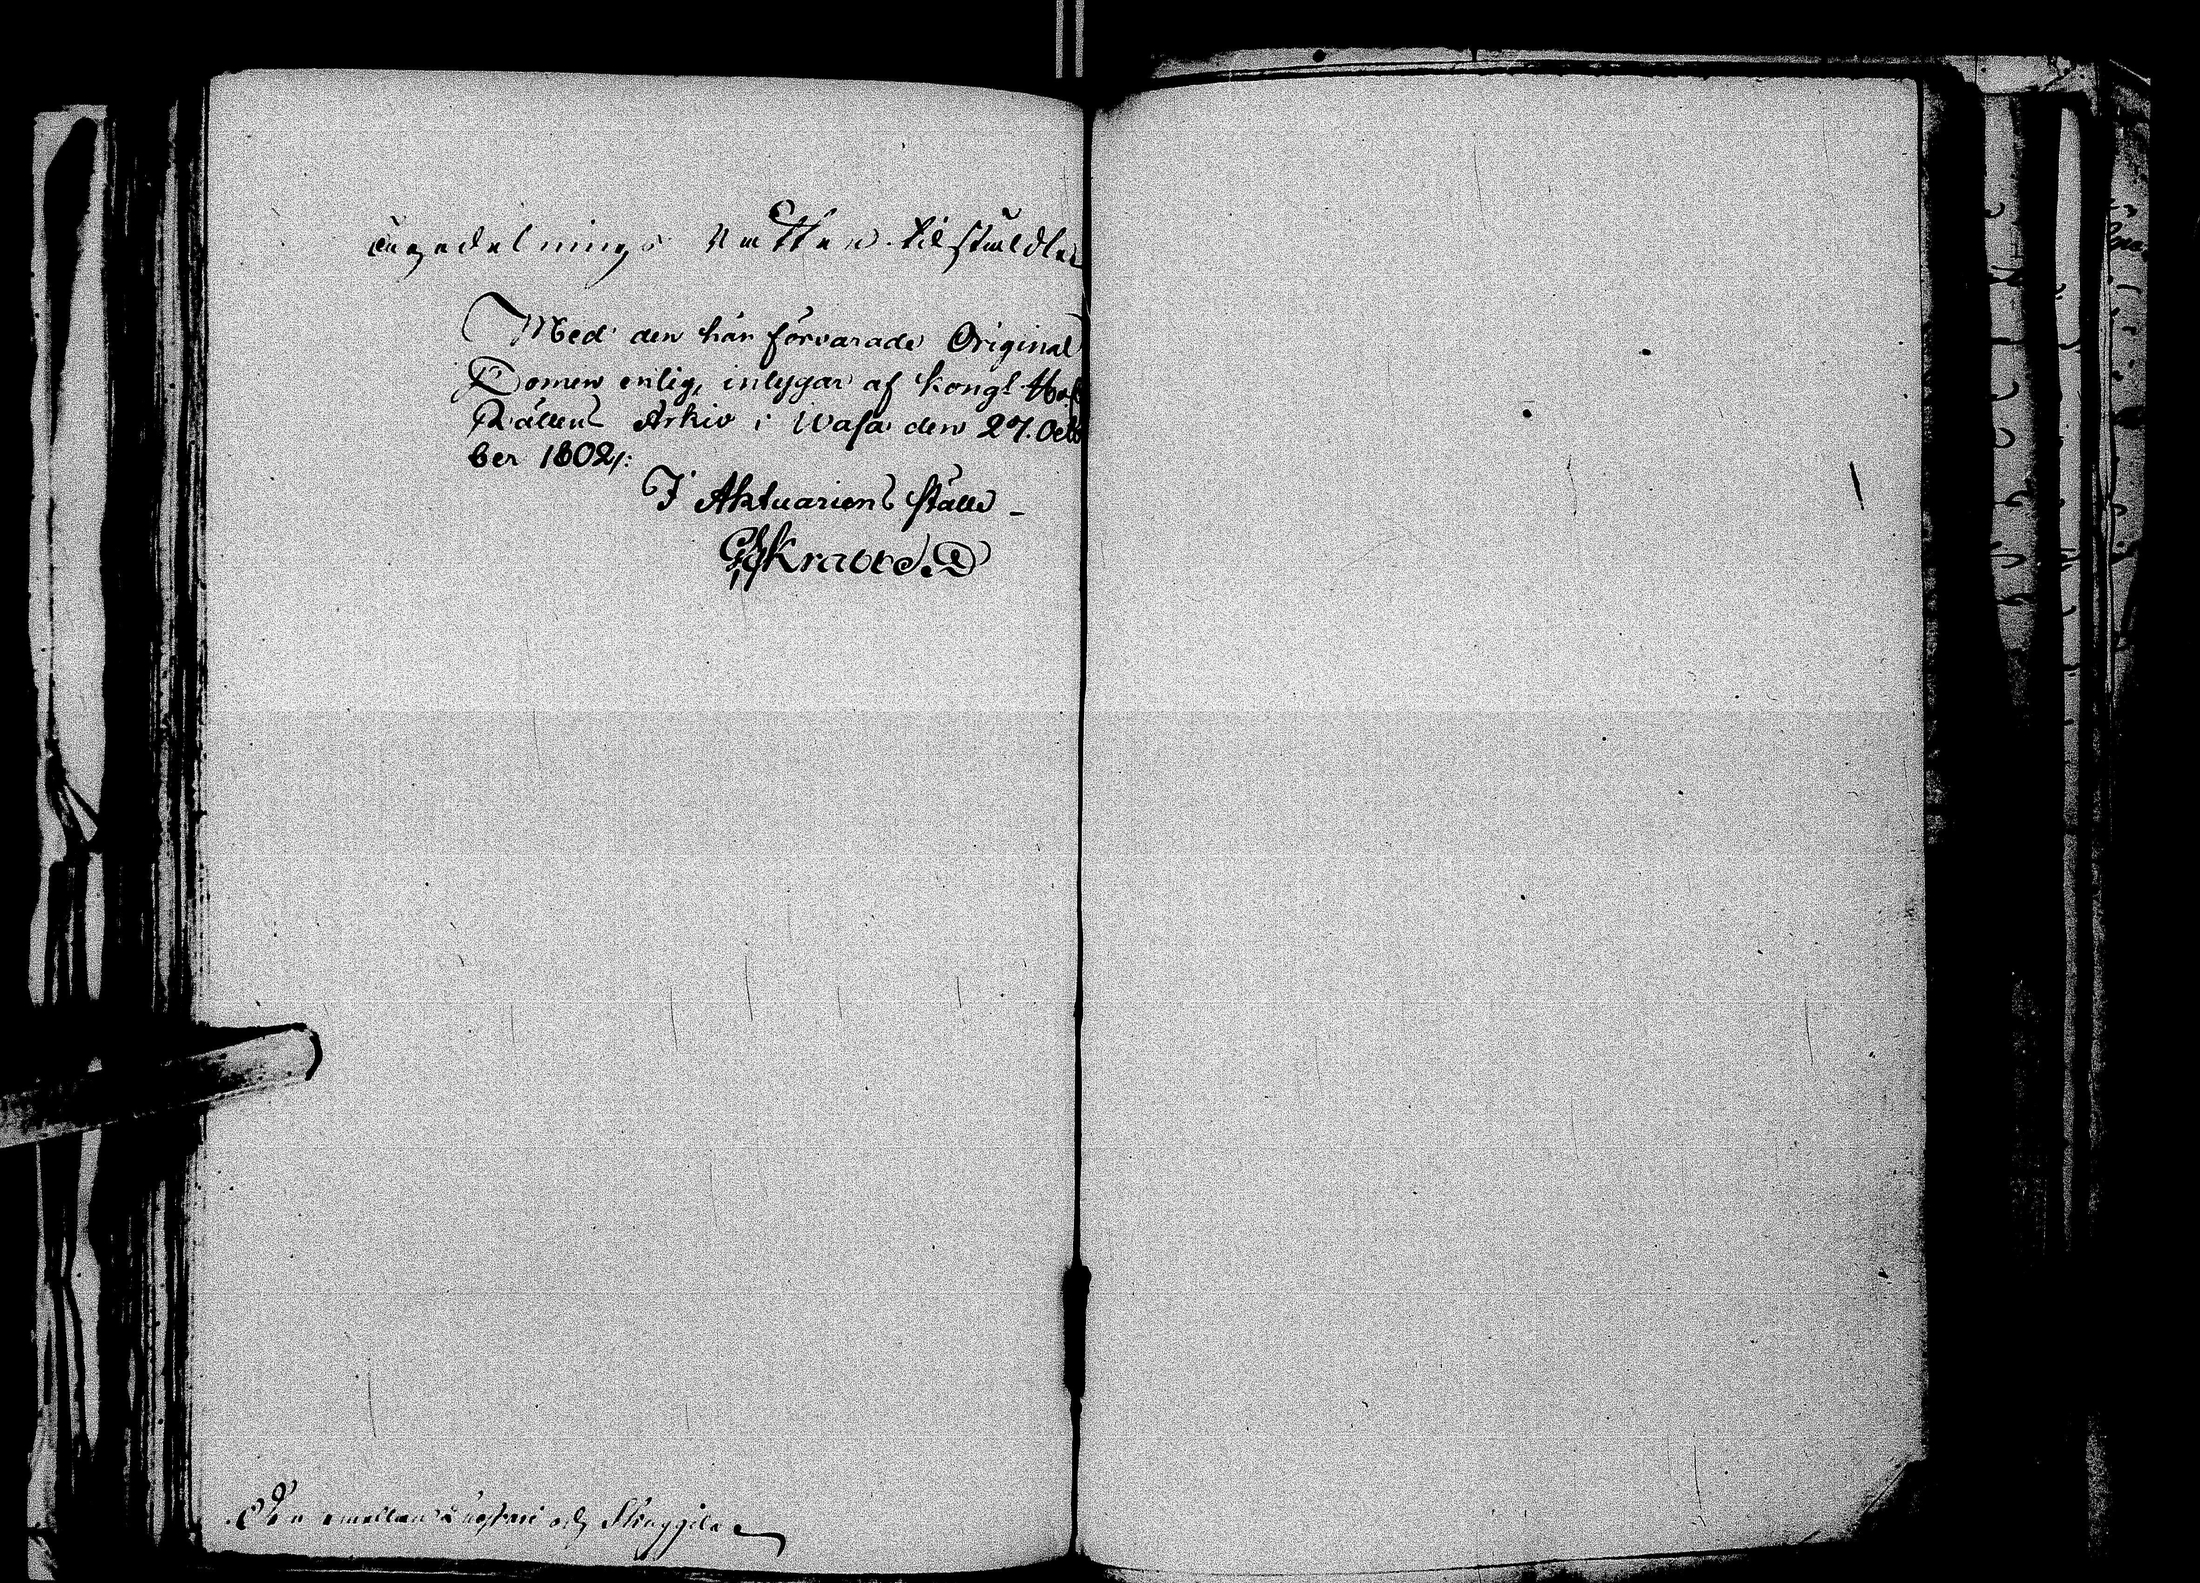 ægodelnings Rätten tilstäldtes
Med den här förvarade Original
Domen enlig, intygar af Kongl. Hof
Rättens Arkiv i Wasa den 27. Octo
ber 1802/:
I Aktuariens ställe
Krabbe
emellan och